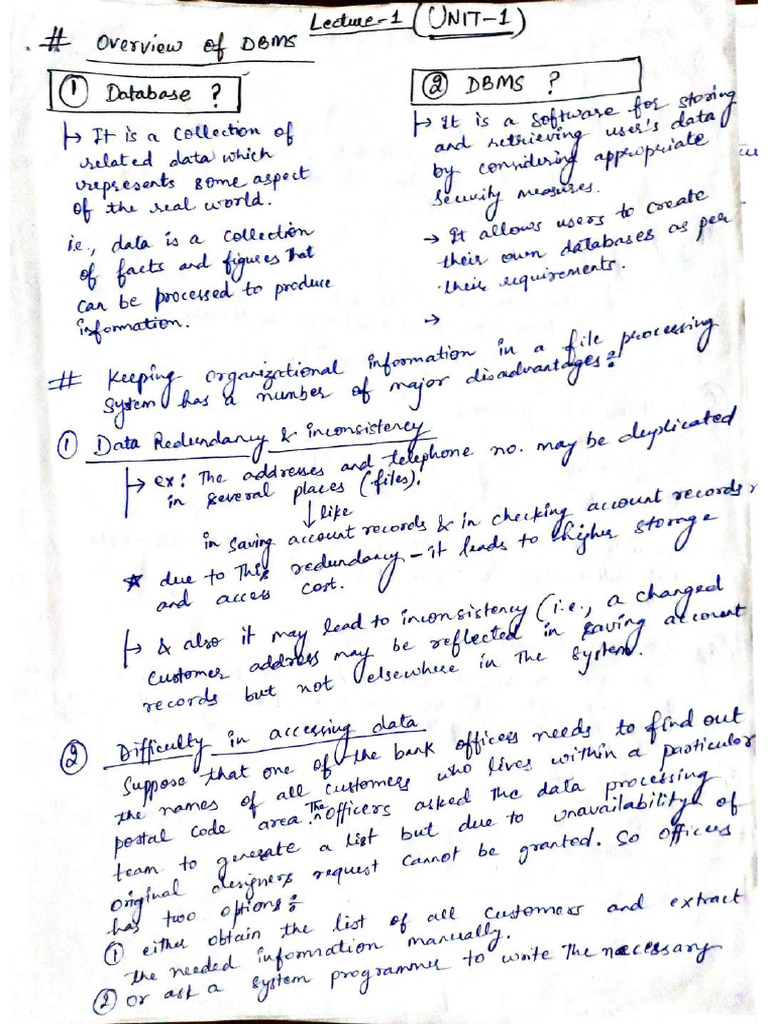 Lecture-1 (UNIT-1)
# Overview of DBMS
① Database ?
↦ It is a collection of
related data which
represents some aspect
of the real world.
i.e., data is a collection
of facts and figures that
can be processed to produce
information.
② DBMS ?
↦ It is a software for storing
and retrieving user's data
by considering appropriate
security measures.
→ It allows users to create
their own databases as per
their requirements.
→
# Keeping organizational information in a file processing
system has a number of major disadvantages:
① Data Redundancy & inconsistency
↦ ex: The addresses and telephone no. may be duplicated
in several places (files).
↓ like
in saving account records & in checking account records
* due to this redundancy - it leads to higher storage
and access cost.
↦ & also it may lead to inconsistency (i.e., a changed
customer address may be reflected in saving account
records but not elsewhere in the system.
② Difficulty in accessing data
Suppose that one of the bank officers needs to find out
the names of all customers who lives within a particular
postal code area. The officers asked the data processing
team to generate a list but due to unavailability of
original designers request cannot be granted. So officers
has two options:
① either obtain the list of all customers and extract
the needed information manually.
② or ask a system programmer to write the necessary